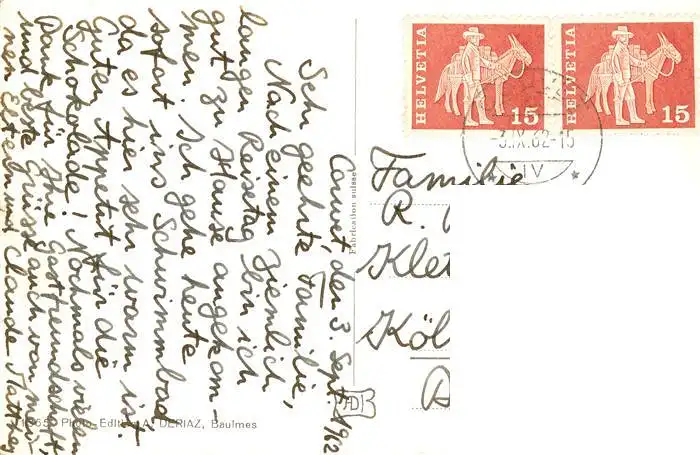 Couvet, den 3. Sept. 1962
Sehr geehrte Familie,
Nach einem ziemlich
langen Reisetag bin ich
gut zu Hause angekom-
men. Ich gehe heute
sofort ins Schwimmbad
da es hier sehr warm ist.
Guten Appetit für die
Schokolade! Nochmals vielen
Dank für Ihre Gastfreundschaft,
und beste Grüsse auch von mei-
nen Eltern Claude Matthey
Fabrication suisse
HELVETIA
15
HELVETIA
15
-3.IX.62-15
IV
Familie
R.
Klet
Köl
D
11365 Photo-Edition A. DERIAZ, Baulmes